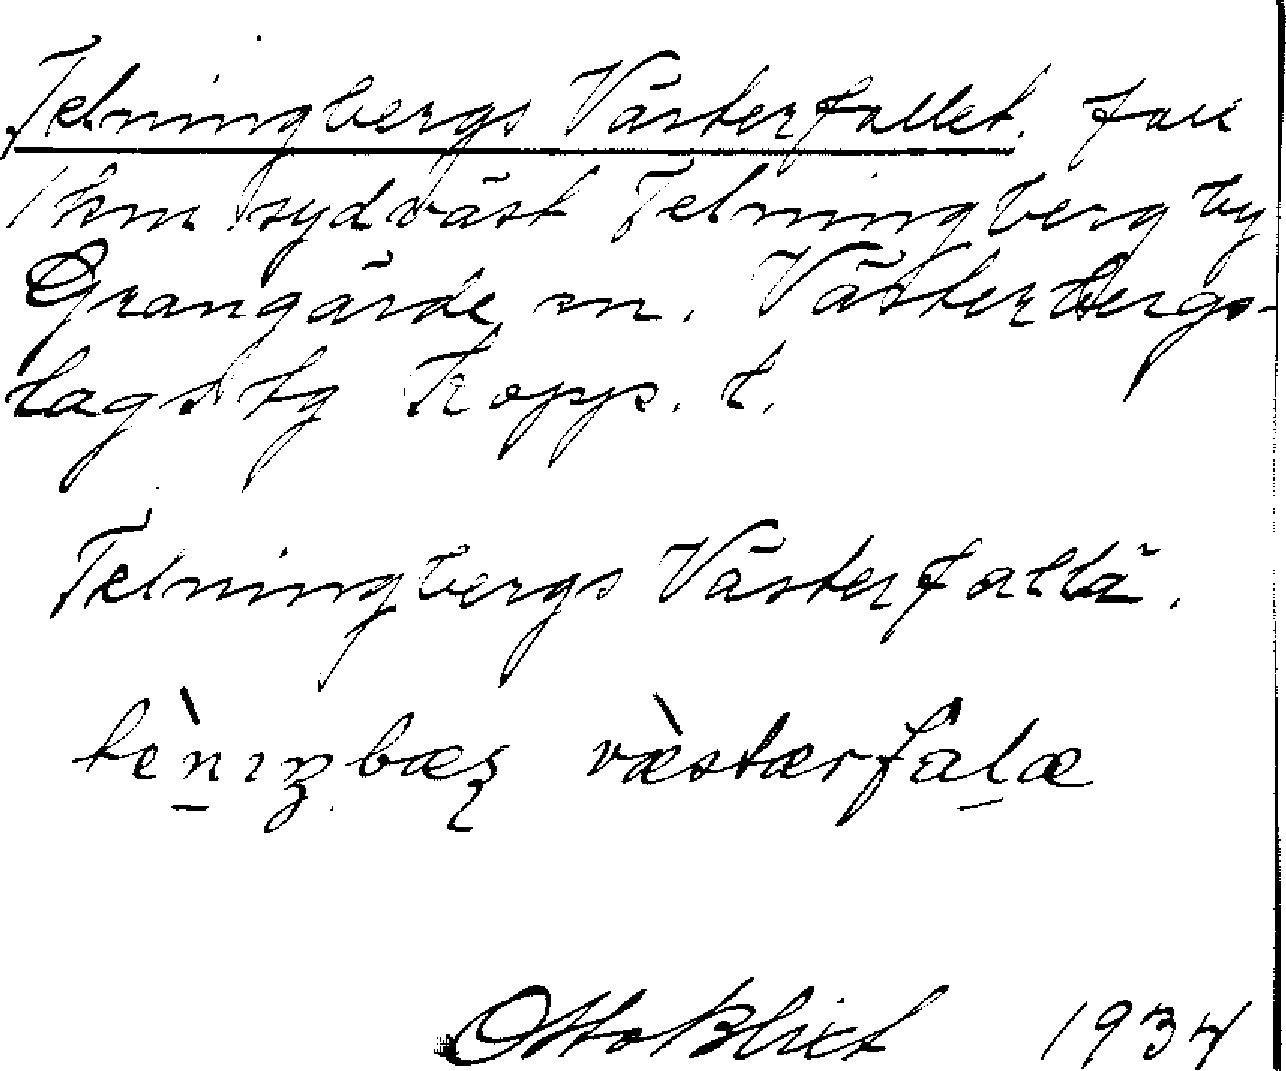 Telningbergs Västerfallet. fall
1 km sydväst Telningberg by
Grangärde sn. Västerbergs-
lags tg Kopp. l.
Telningbergs Västerfallä.
tènıŋbæʂ væ̀stærfalæ
Otto Blixt 1934